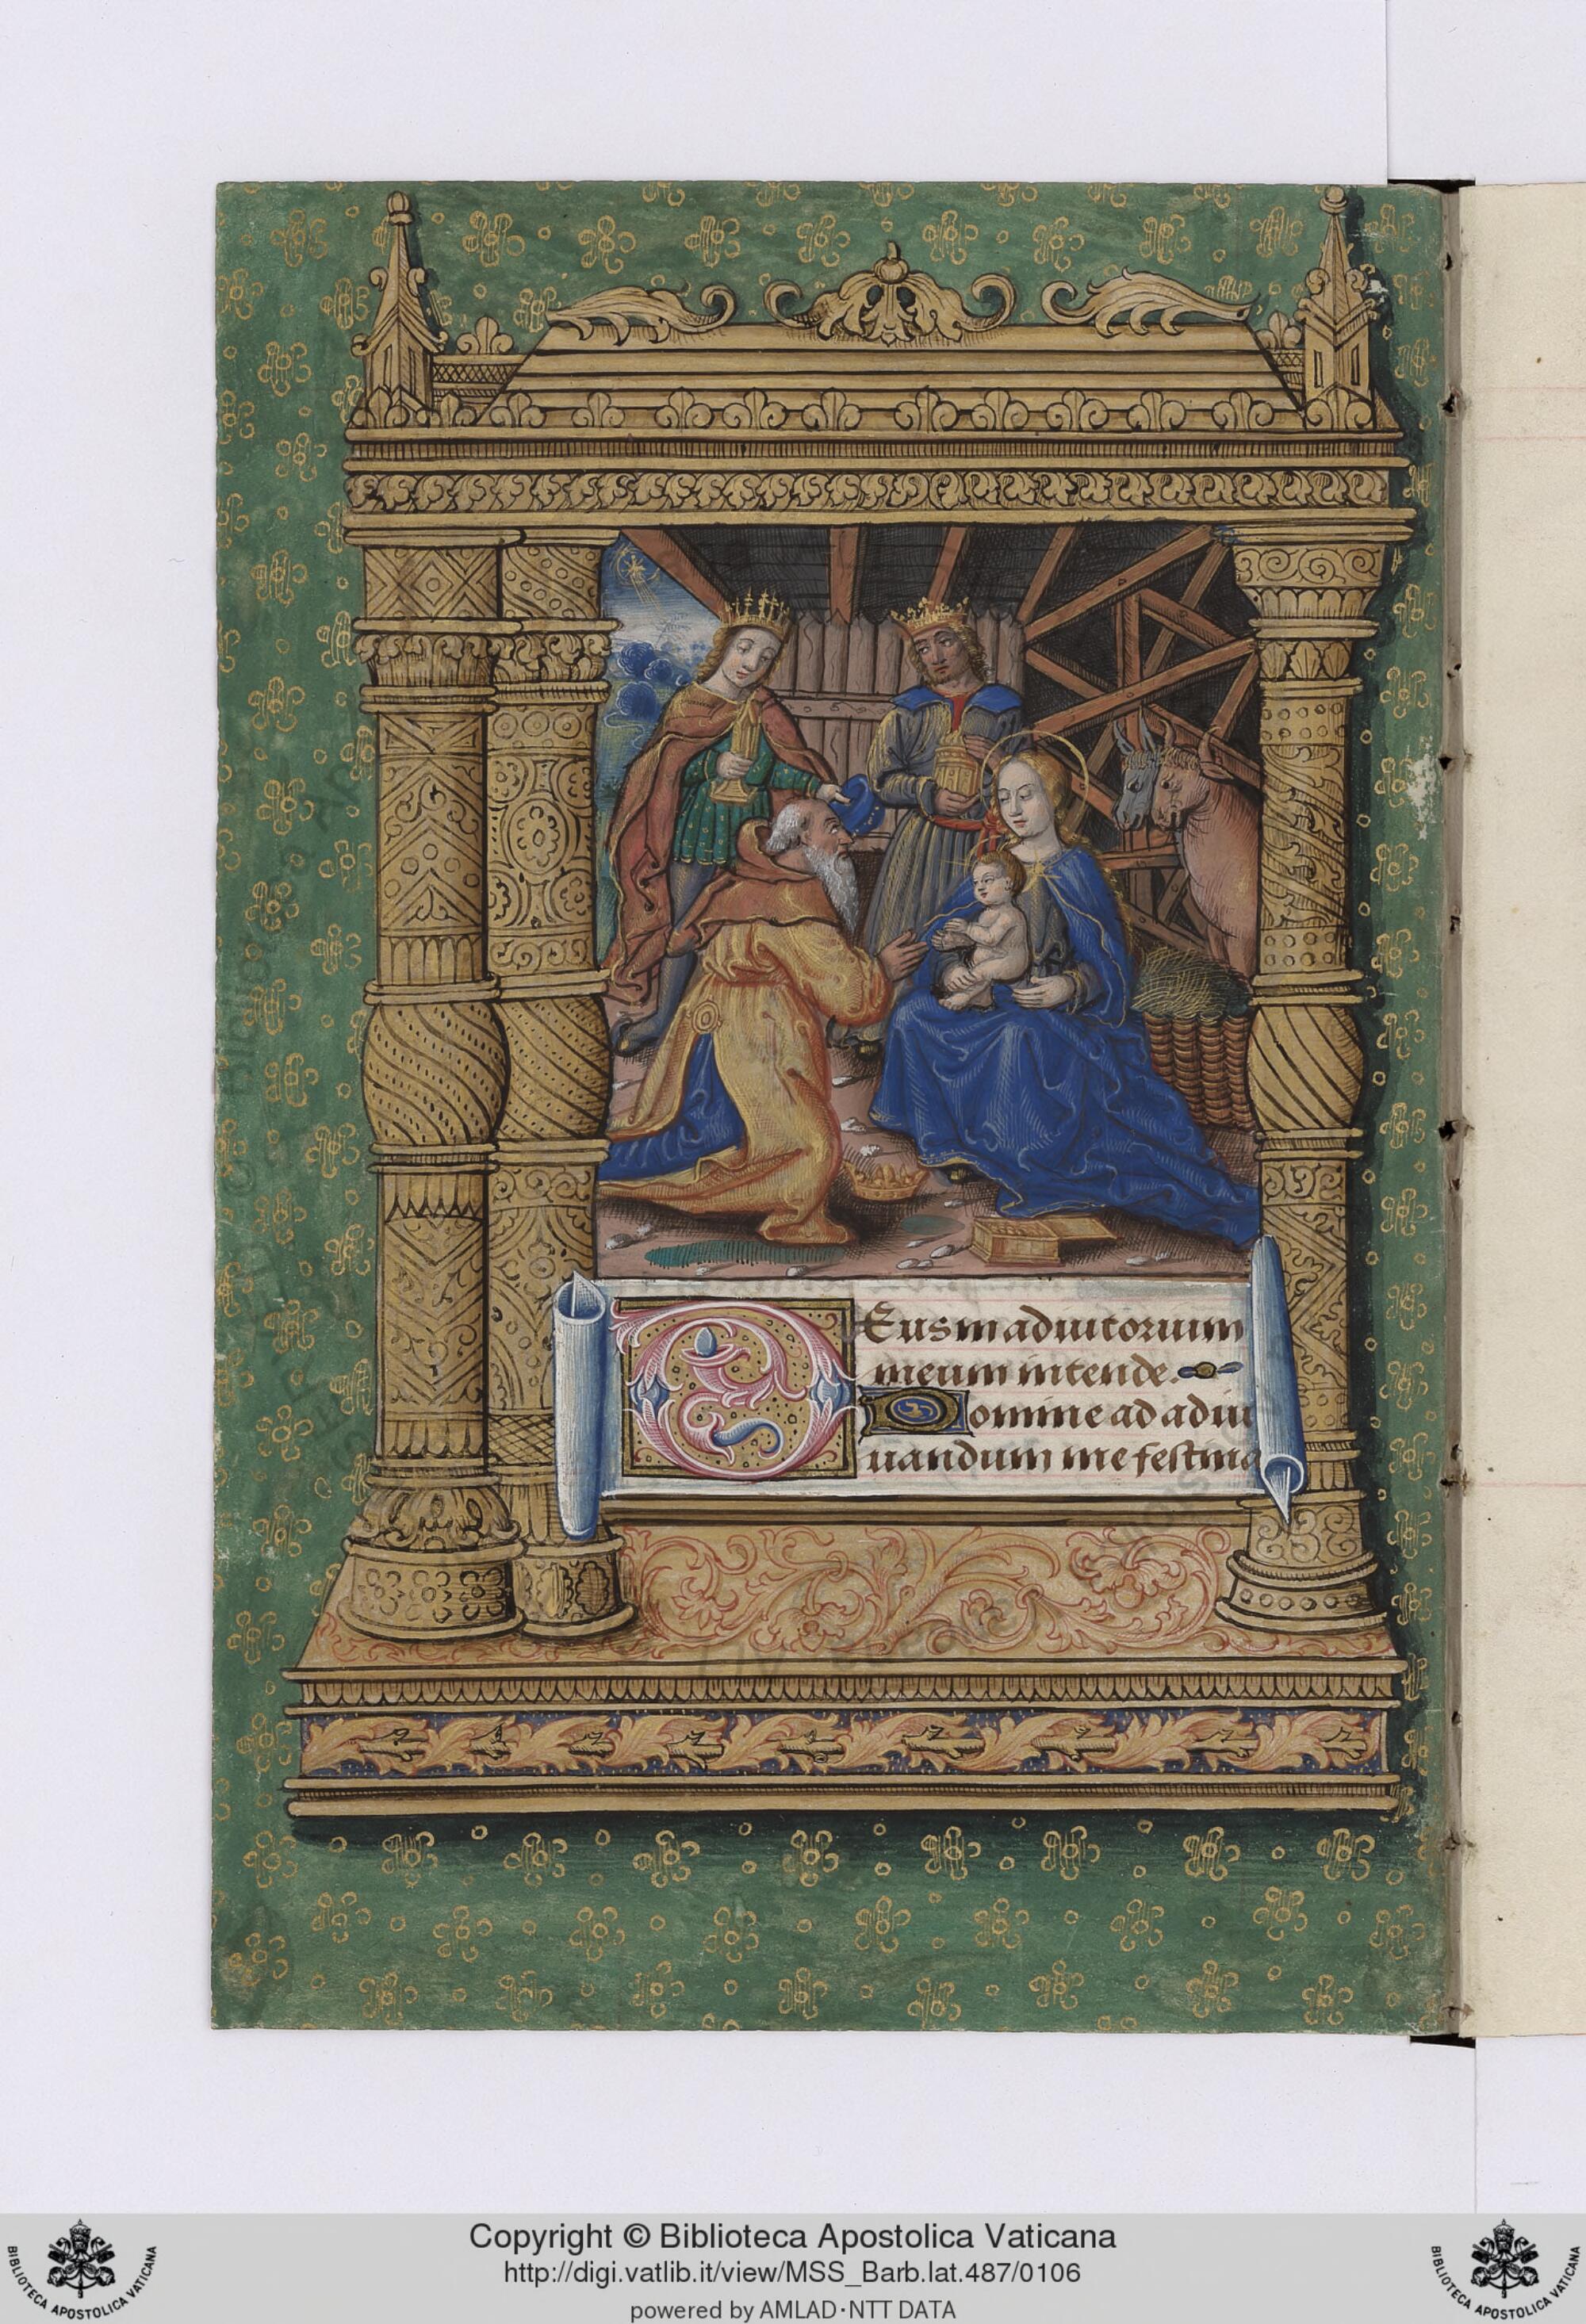 DEus in adiutorium
meum intende.
Domine ad adiu
uandum me festina
Copyright © Biblioteca Apostolica Vaticana
http://digi.vatlib.it/view/MSS_Barb.lat.487/0106
powered by AMLAD·NTT DATA
BIBLIOTECA APOSTOLICA VATICANA
BIBLIOTECA APOSTOLICA VATICANA